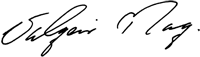 Valgeir Mag.